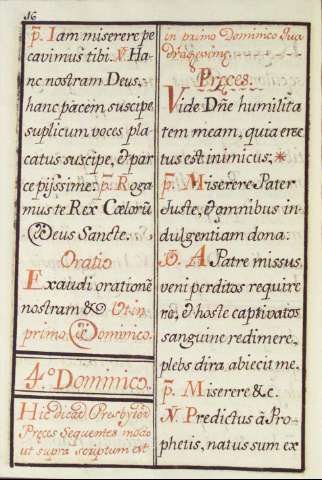 16
p. Iam miserere pe
cavimus tibi. V. Ha
nc nostram Deus.
hanc pacem, suscipe
suplicum voces pla
catus suscipe, & par
ce pijssime. p. Roga
mus te Rex Cælorũ
Deus Sancte.
Oratio
Exaudi orationẽ
nostram & Ut in
primo Dominico.
4.º Dominico.
Hic dicãt Presbyteri
Preces Sequentes modo
ut supra scriptum est
in primo Dominico Qua
dragesimæ.
Preçes.
Vide Dñe humilita
tem meam, quia erec
tus est inimicus: *
p. Miserere Pater
Juste, & omnibus in
dulgentiam dona.
V. A Patre missus
veni perditos require
re, & hoste captivatos
sanguine redimere,
plebs dira abiecit me.
p. Miserere &c.
V. Predictus â Pro-
phetis, natus sum ex